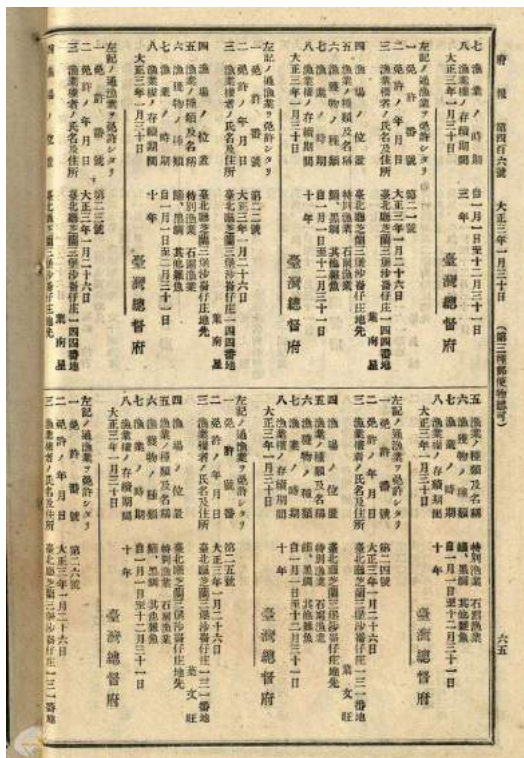 府報 第四百六號 大正三年一月三十日 (第三種郵便物認可) 六五
七 漁業ノ時期 自一月一日至十二月三十一日
八 漁業權ノ存續期間 三年
大正三年一月三十日 臺灣總督府
左記ノ通漁業ヲ免許シタリ
一 免許番號 第二一號
二 免許ノ年月日 大正三年一月二十六日
三 漁業權者ノ氏名及住所 臺北廳芝蘭三堡沙崙仔庄一四四番地
葉南星
四 漁場ノ位置 臺北廳芝蘭三堡沙崙仔庄地先
五 漁業ノ種類及名稱 特別漁業 石滬漁業
六 漁獲物ノ種類 黑鯛、其他雜魚
七 漁業ノ時期 自一月一日至十二月三十一日
八 漁業權ノ存續期間 十年
大正三年一月三十日 臺灣總督府
左記ノ通漁業ヲ免許シタリ
一 免許番號 第二二號
二 免許ノ年月日 大正三年一月二十六日
三 漁業權者ノ氏名及住所 臺北廳芝蘭三堡沙崙仔庄一四四番地
葉南星
四 漁場ノ位置 臺北廳芝蘭三堡沙崙仔庄地先
五 漁業ノ種類及名稱 特別漁業 石滬漁業
六 漁獲物ノ種類 黑鯛、其他雜魚
七 漁業ノ時期 自一月一日至十二月三十一日
八 漁業權ノ存續期間 十年
大正三年一月三十日 臺灣總督府
左記ノ通漁業ヲ免許シタリ
一 免許番號 第二三號
二 免許ノ年月日 大正三年一月二十六日
三 漁業權者ノ氏名及住所 臺北廳芝蘭三堡沙崙仔庄一四四番地
葉南星
四 漁場ノ位置 臺北廳芝蘭三堡沙崙仔庄地先
五 漁業ノ種類及名稱 特別漁業 石滬漁業
六 漁獲物ノ種類 黑鯛、其他雜魚
七 漁業ノ時期 自一月一日至十二月三十一日
八 漁業權ノ存續期間 十年
大正三年一月三十日 臺灣總督府
左記ノ通漁業ヲ免許シタリ
一 免許番號 第二四號
二 免許ノ年月日 大正三年一月二十六日
三 漁業權者ノ氏名及住所 臺北廳芝蘭三堡沙崙仔庄一三一番地
葉文旺
四 漁場ノ位置 臺北廳芝蘭三堡沙崙仔庄地先
五 漁業ノ種類及名稱 特別漁業 石滬漁業
六 漁獲物ノ種類 黑鯛、其他雜魚
七 漁業ノ時期 自一月一日至十二月三十一日
八 漁業權ノ存續期間 十年
大正三年一月三十日 臺灣總督府
左記ノ通漁業ヲ免許シタリ
一 免許號番 第二五號
二 免許ノ年月日 大正三年一月二十六日
三 漁業權者ノ氏名及住所 臺北廳芝蘭三堡沙崙仔庄一三一番地
葉文旺
四 漁場ノ位置 臺北廳芝蘭三堡沙崙仔庄地先
五 漁業ノ種類及名稱 特別漁業 石滬漁業
六 漁獲物ノ種類 黑鯛、其他雜魚
七 漁業ノ時期 自一月一日至十二月三十一日
八 漁業權ノ存續期間 十年
大正三年一月三十日 臺灣總督府
左記ノ通漁業ヲ免許シタリ
一 免許番號 第二六號
二 免許ノ年月日 大正三年一月二十六日
三 漁業權者ノ氏名及住所 臺北廳芝蘭三堡沙崙仔庄一三一番地